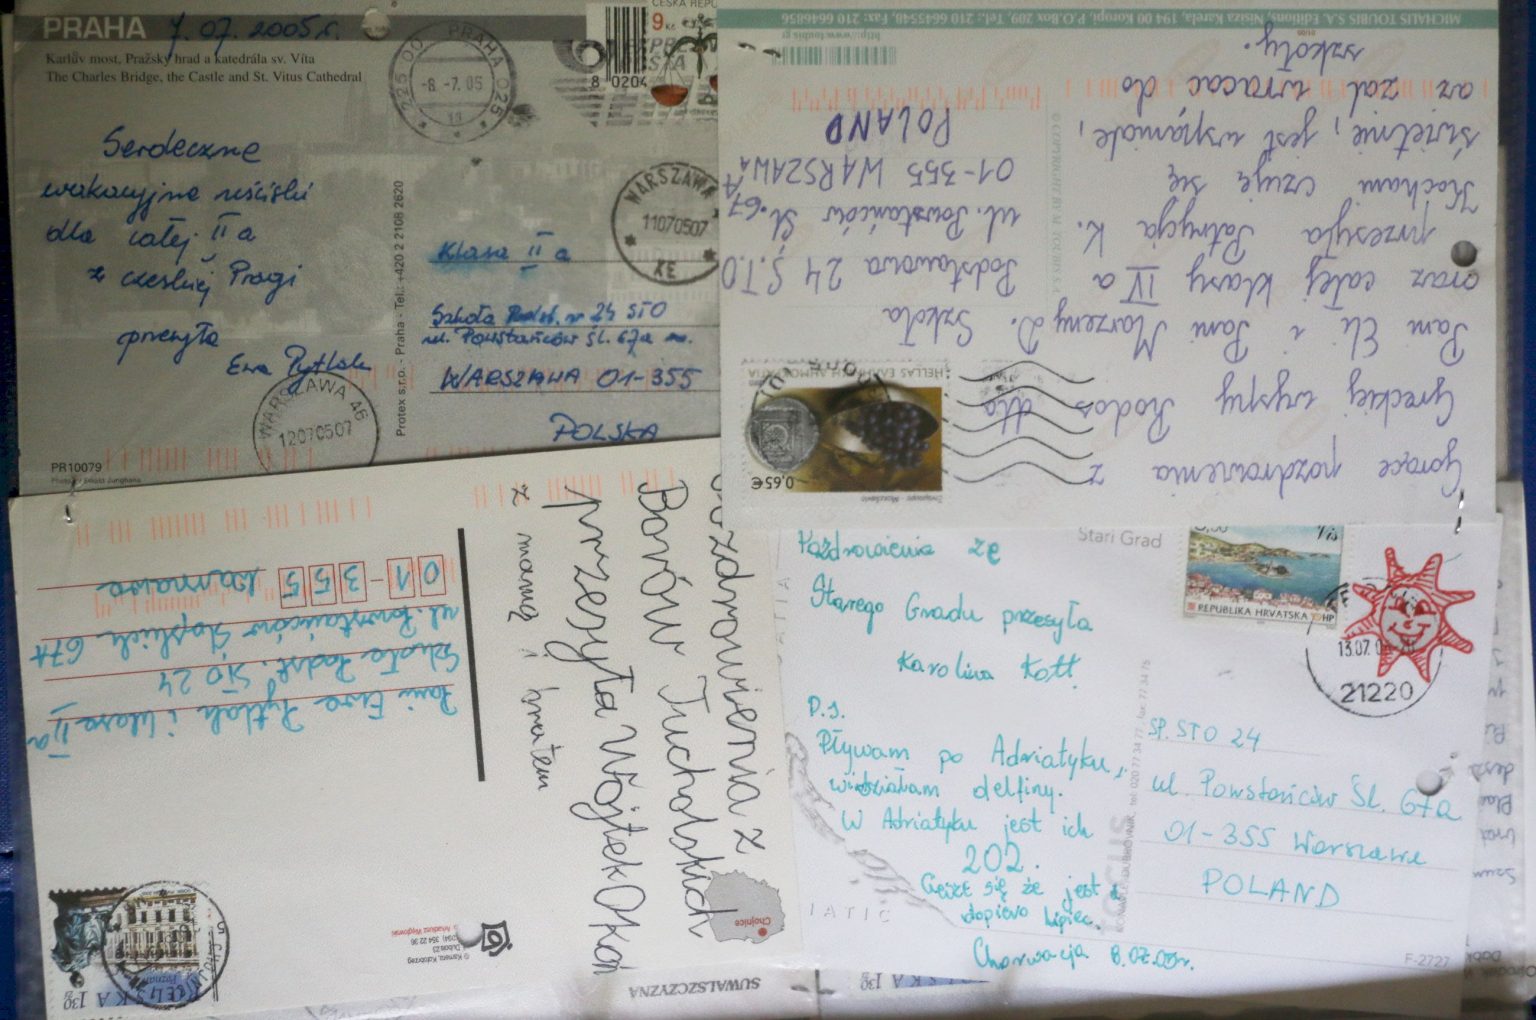 PRAHA 7.07.2005r.
Karlův most, Pražský hrad a katedrála sv. Víta
The Charles Bridge, the Castle and St. Vitus Cathedral
225 00 PRAHA 025
-8.-7.05
ČESKÁ REPU
9
8 0204
Serdeczne
wakacyjne uściski
dla całej II a
z czeskiej Pragi
przesyła
Ewa Pytlak
WARSZAWA
11070507
XE
WARSZAWA 46
12070507
Protex s.r.o. - Praha - Tel.: +420 2 2108 2620
Klasa II a
Szkoła Podst. nr 24 STO
ul. Powstańców Śl. 67a
WARSZAWA 01-355
POLSKA
PR10079
MICHALIS TOUBIS EDITIONS S.A. Nisiza Karela, 194 00 Koropi, P.O.Box 209, Tel.: 210 6645548, Fax: 210 6646856
http://www.toubis.gr
© COPYRIGHT BY M. TOUBIS S.A.
Gorące pozdrowienia z
Greckiej wyspy Rodos dla
Pani Eli i Pani Marzeny D.
oraz całej klasy IV a
przesyła Patrycja K.
Kocham czuję się
świetnie, jest wspaniale,
aż żal wracać do
szkoły.
HELLAS
0.65€
Szkoła
Podstawowa 24 S.T.O
ul. Powstańców Śl. 67A
01-355 WARSZAWA
POLAND
Pozdrowienia z
Borów Tucholskich
przesyła Wojtek Okoń
z mamą i bratem
Pani Ewa Pytlak i klasa II a
Szkoła Podst. STO 24
ul. Powstańców Śląskich 67A
01-355 Warszawa
Chojnice
POLSKA 130
SUWALSZCZYZNA
Pozdrowienia ze
Starego Gradu przesyła
Karolina Kott
P.S.
Pływam po Adriatyku,
widziałam delfiny.
W Adriatyku jest ich
202.
Cieszę się że jest
dopiero lipiec.
Chorwacja 8.07.05r.
Stari Grad
Vis
REPUBLIKA HRVATSKA HP
13.07.0
21220
SP. STO 24
ul. Powstańców Śl. 67a
01-355 Warszawa
POLAND
F-2727